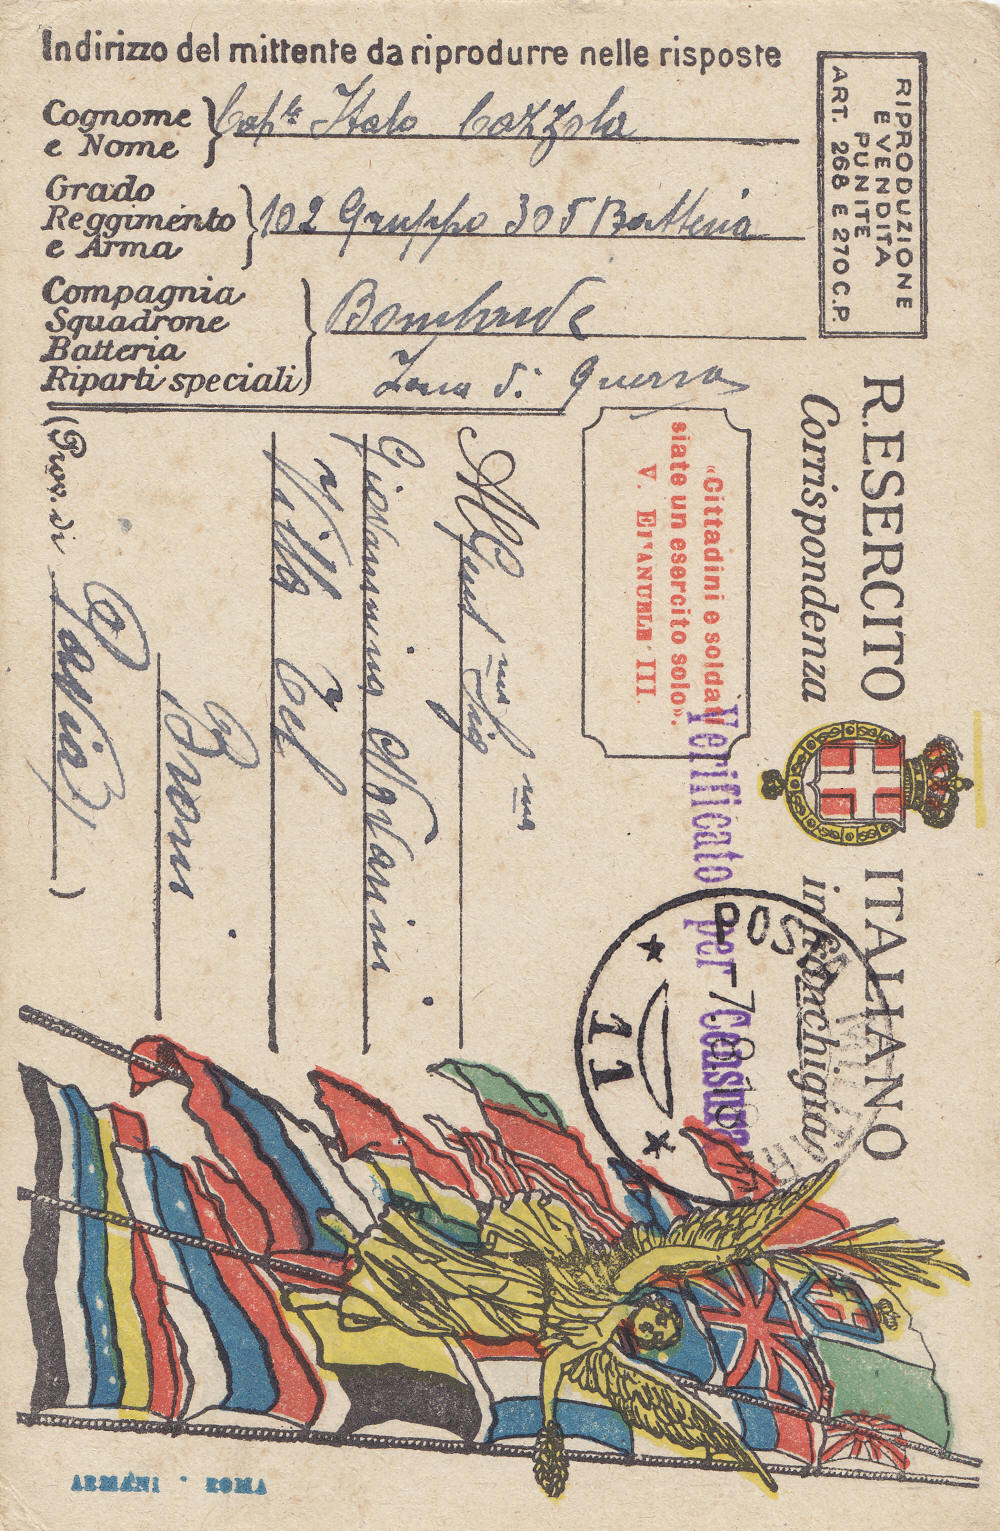 Indirizzo del mittente da riprodurre nelle risposte
Cognome
e Nome
Cap.le Italo Cozzola
Grado
Reggimento
e Arma
102 Gruppo 305 Batteria
Compagnia
Squadrone
Batteria
Riparti speciali
Bombarde
Zona di Guerra
RIPRODUZIONE
E VENDITA
PUNITE
ART. 268 E 270 C.P.
R. ESERCITO ITALIANO
Corrispondenza in franchigia
«Cittadini e soldati
siate un esercito solo».
V. EMANUELE III
Verificato per Censura
POSTA MILITARE
11
Gent ma Sig na
Giovannina
Villa
Broni
(Prov. di Pavia)
ARMANI - ROMA